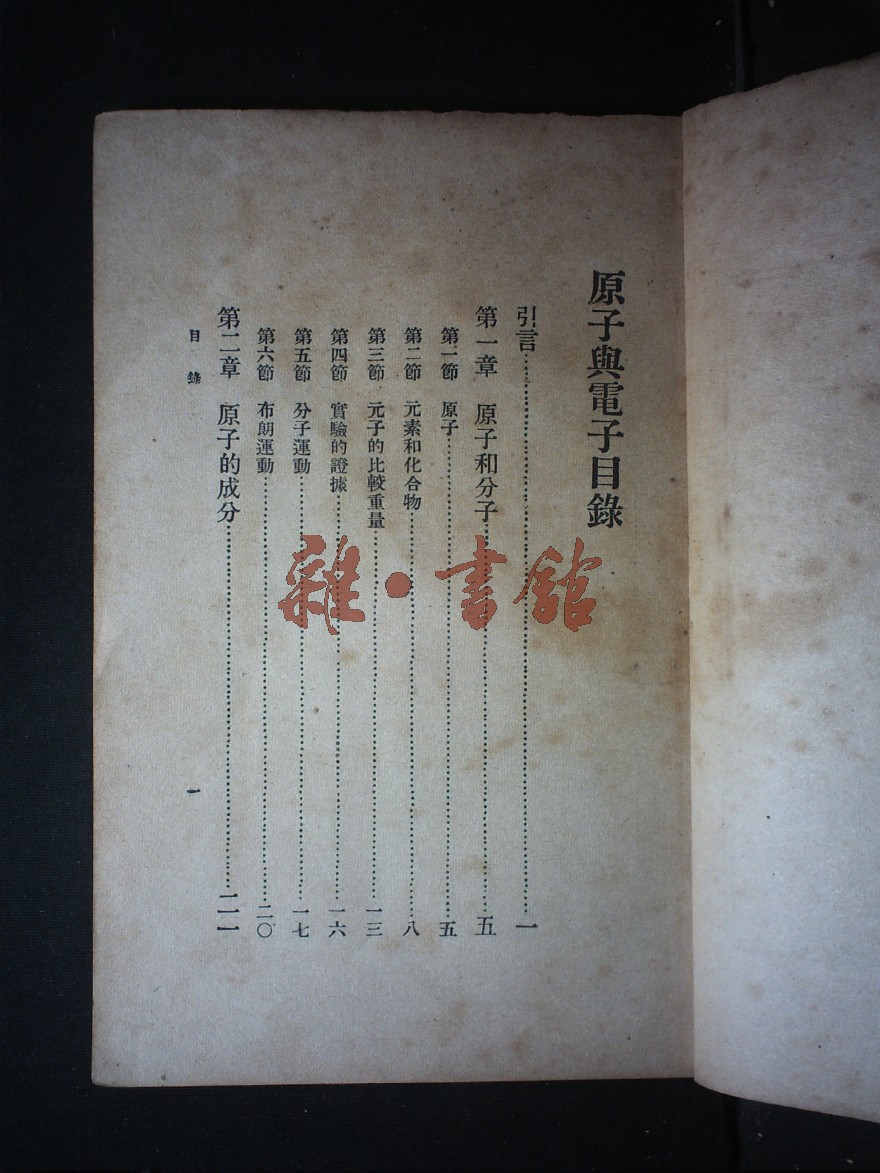 原子與電子目錄
引言……一
第一章 原子和分子……五
第一節 原子……五
第二節 元素和化合物……八
第三節 元子的比較重量……一三
第四節 實驗的證據……一六
第五節 分子運動……一七
第六節 布朗運動……二〇
第二章 原子的成分……二一
目錄 一
雜·書館